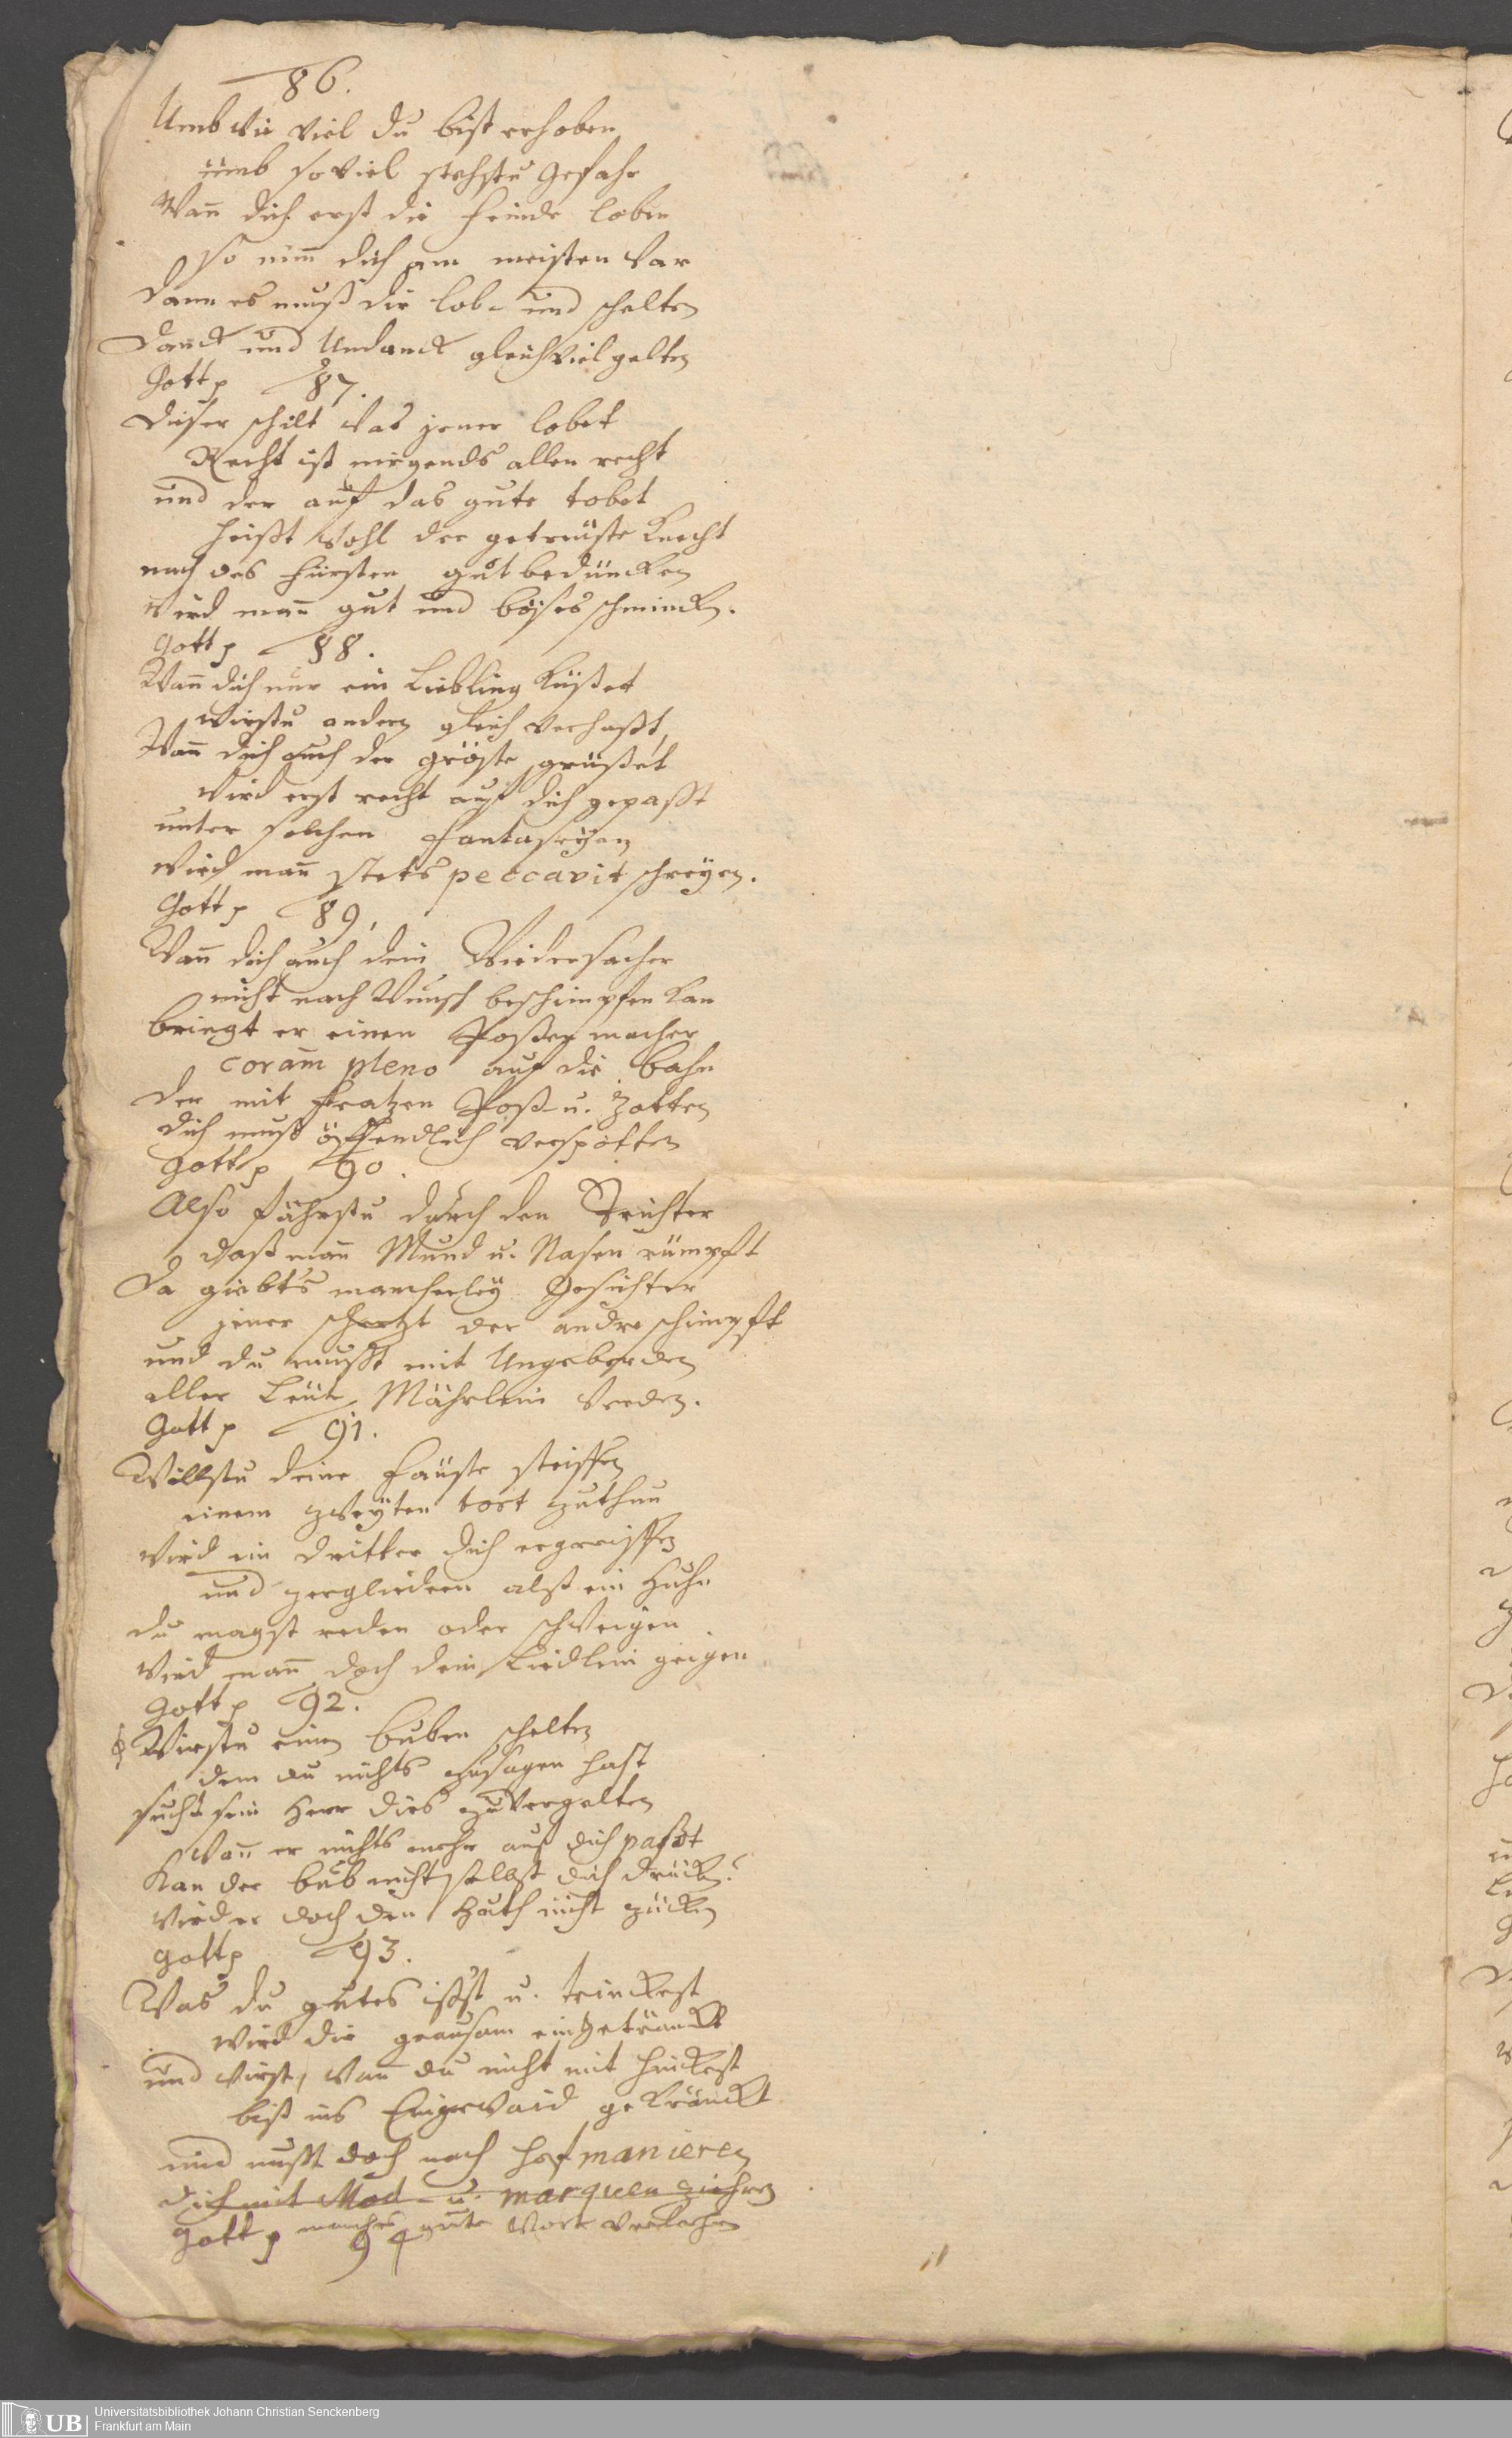 86.
Umb wie viel du bist erhoben
umb so viel stehstu gefahr
Wañ dich erst die feinde loben
so nim̃ dich am meisten war
dann es muß dir lob- und schelten
danck und Undanck gleich viel gelten
Gott p 87.
dieser schilt was jener lobet
Recht ist nirgends allen recht
und der auf das gute tobet
heißt wohl der getreuste Knecht
nach des fürsten gutbedüncken
wird mann gut und böses schmincken.
Gott p 88.
Wañ dich nur ein Liebling küßet
wirstu andern gleich verhaßt,
Wañ dich auch der gröste grüßet
wird erst recht auf dich gepaßt
unter solchen fantaseyen
wird mañ stets peccavit schreyen.
Gott p 89.
Wañ dich auch dein Widersacher
nicht nach Wunsch beschimpfen kan
bringt er einen Possen macher
coram pleno auf die bahn
der mit fratzen Poß- u. Zotten
dich muß öffendlich verspotten
Gott p 90.
Also fährstu durch den Trichter
daß mañ Mund u. Nasen rümpft
da giebts mancherley Gesichter
jener schertzt der andre schimpft
und du must mit Ungeberden
aller Leute Mährlein werden.
Gott p 91.
Willstu deine fäuste steiffen
einem zweyten tort zuthun
wird ein dritter dich ergreiffen
und zergliedern alß ein Huhn
du magst reden oder schweigen
wird mañ doch dein Liedlein geigen
Gott p 92.
Wirstu einen buben schelten
dem du nichts zusagen hast
sucht sein Herr dies zuvergelten
wañ er nichts mehr auf dich paßt
kan der bub nicht selbst dich drücken
wird er doch den Huth nicht zücken
Gott p 93.
Was du gutes ißst u. trinckest
wird dir grausam eingetränckt
und wirst, wañ du nicht mit hinckest
biß ins Eingewaid gekränckt
und must doch nach hof manieren
dich mit Mod- u. marquen ziehren
manches gute Wort verliehren
Gott p 94
Universitätsbibliothek Johann Christian Senckenberg
Frankfurt am Main
UB